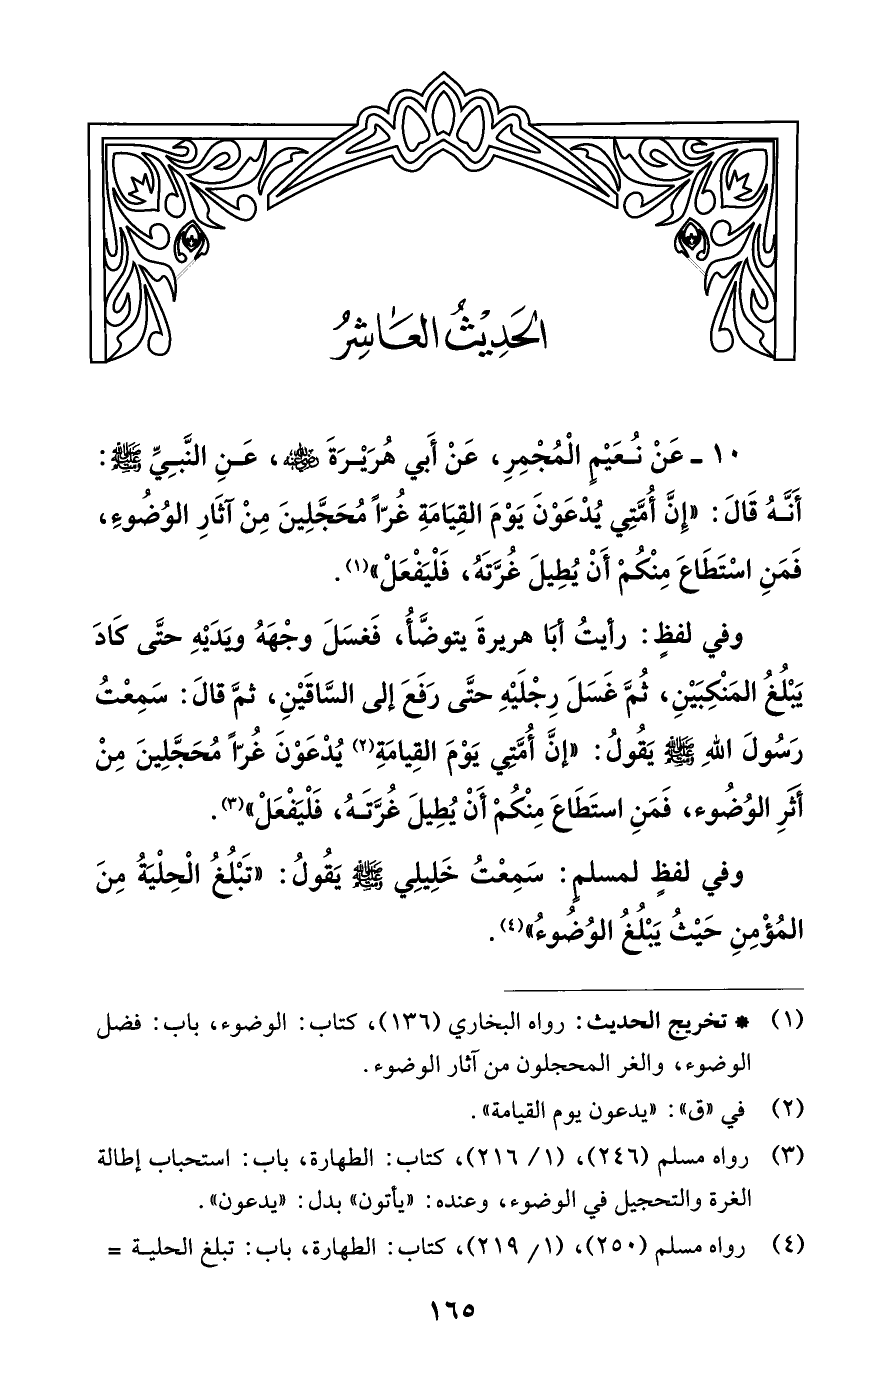 الحَدِيْثُ العَاشِرُ
١٠ ـ عَنْ نُعَيْمٍ الْمُجْمِرِ، عَنْ أَبي هُرَيْرَةَ رضي الله عنه، عَنِ النَّبِيِّ ﷺ:
أَنَّهُ قَالَ: «إِنَّ أُمَّتِي يُدْعَوْنَ يَوْمَ القِيَامَةِ غُرّاً مُحَجَّلِينَ مِنْ آثَارِ الوُضُوءِ،
فَمَنِ اسْتَطَاعَ مِنْكُمْ أَنْ يُطِيلَ غُرَّتَهُ، فَلْيَفْعَلْ»(١).
وفي لفظٍ: رأيتُ أبَا هريرةَ يتوضَّأُ، فَغسَلَ وجْهَهُ ويَدَيْهِ حتَّى كَادَ
يَبْلُغُ المَنْكِبَيْنِ، ثُمَّ غَسَلَ رِجْلَيْهِ حتَّى رَفَعَ إلى السَّاقَيْنِ، ثمَّ قالَ: سَمِعْتُ
رَسُولَ اللهِ ﷺ يَقُولُ: «إنَّ أُمَّتِي يَوْمَ القِيامَةِ(٢) يُدْعَوْنَ غُرّاً مُحَجَّلِينَ مِنْ
أَثَرِ الوُضُوء، فَمَنِ استَطَاعَ مِنْكُمْ أَنْ يُطِيلَ غُرَّتَهُ، فَلْيَفْعَلْ»(٣).
وفي لفظٍ لمسلمٍ: سَمِعْتُ خَلِيلِي ﷺ يَقُولُ: «تَبْلُغُ الْحِلْيَةُ مِنَ
المُؤْمِنِ حَيْثُ يَبْلُغُ الوُضُوءُ»(٤).
(١) * تخريج الحديث: رواه البخاري (١٣٦)، كتاب: الوضوء، باب: فضل
الوضوء، والغر المحجلون من آثار الوضوء.
(٢) في «ق»: «يدعون يوم القيامة».
(٣) رواه مسلم (٢٤٦)، (١/ ٢١٦)، كتاب: الطهارة، باب: استحباب إطالة
الغرة والتحجيل في الوضوء، وعنده: «يأتون» بدل: «يدعون».
(٤) رواه مسلم (٢٥٠)، (١/ ٢١٩)، كتاب: الطهارة، باب: تبلغ الحلية =
١٦٥